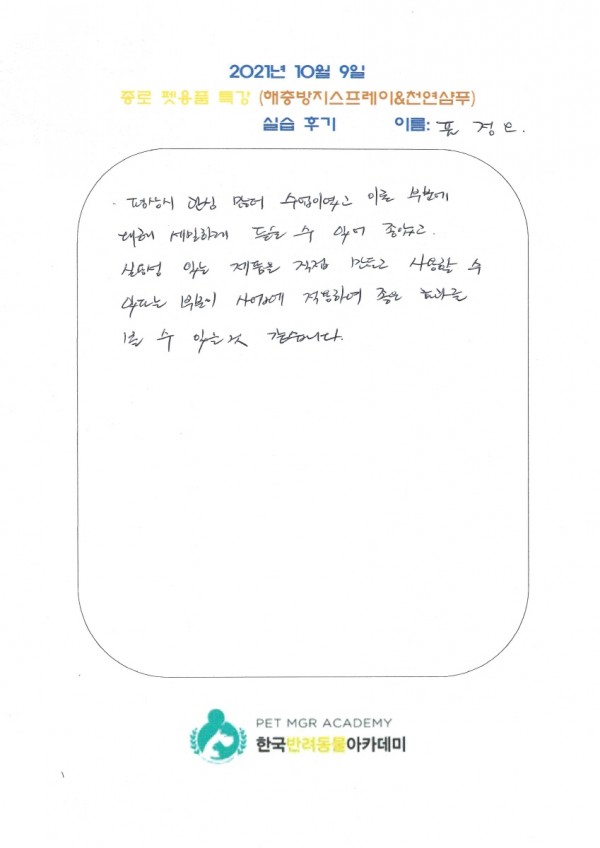 2021년 10월 9일
종로 펫용품 특강 (해충방지스프레이&천연샴푸)
실습 후기 이름: 표 경
· 평상시 관심 많던 수업이였고 이론 부분에
대해 세밀하게 들을 수 있어 좋았고.
실용성 있는 제품을 직접 만들고 사용할 수
있다는 부분이 사업에 적용하여 좋은 효과를
볼 수 있는것 같습니다.
PET MGR ACADEMY
한국반려동물아카데미